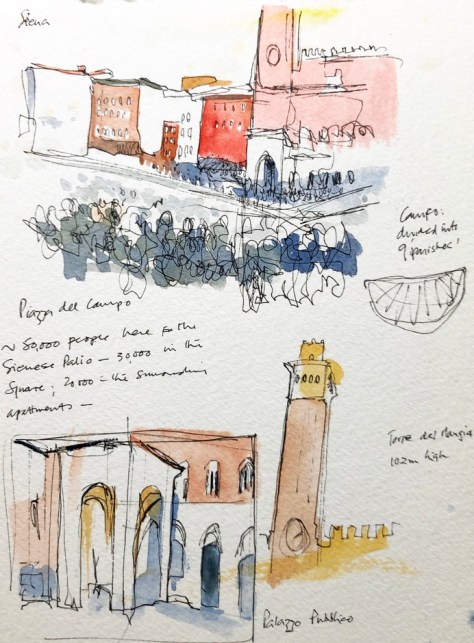 Siena
Campo:
divided into
9 parishes!
Piazza del Campo
~ 50,000 people here for the
Sienese Palio — 30,000 in the
Square; 20,000 in the surrounding
apartments —
Torre del Mangia
102m high
Palazzo Pubblico